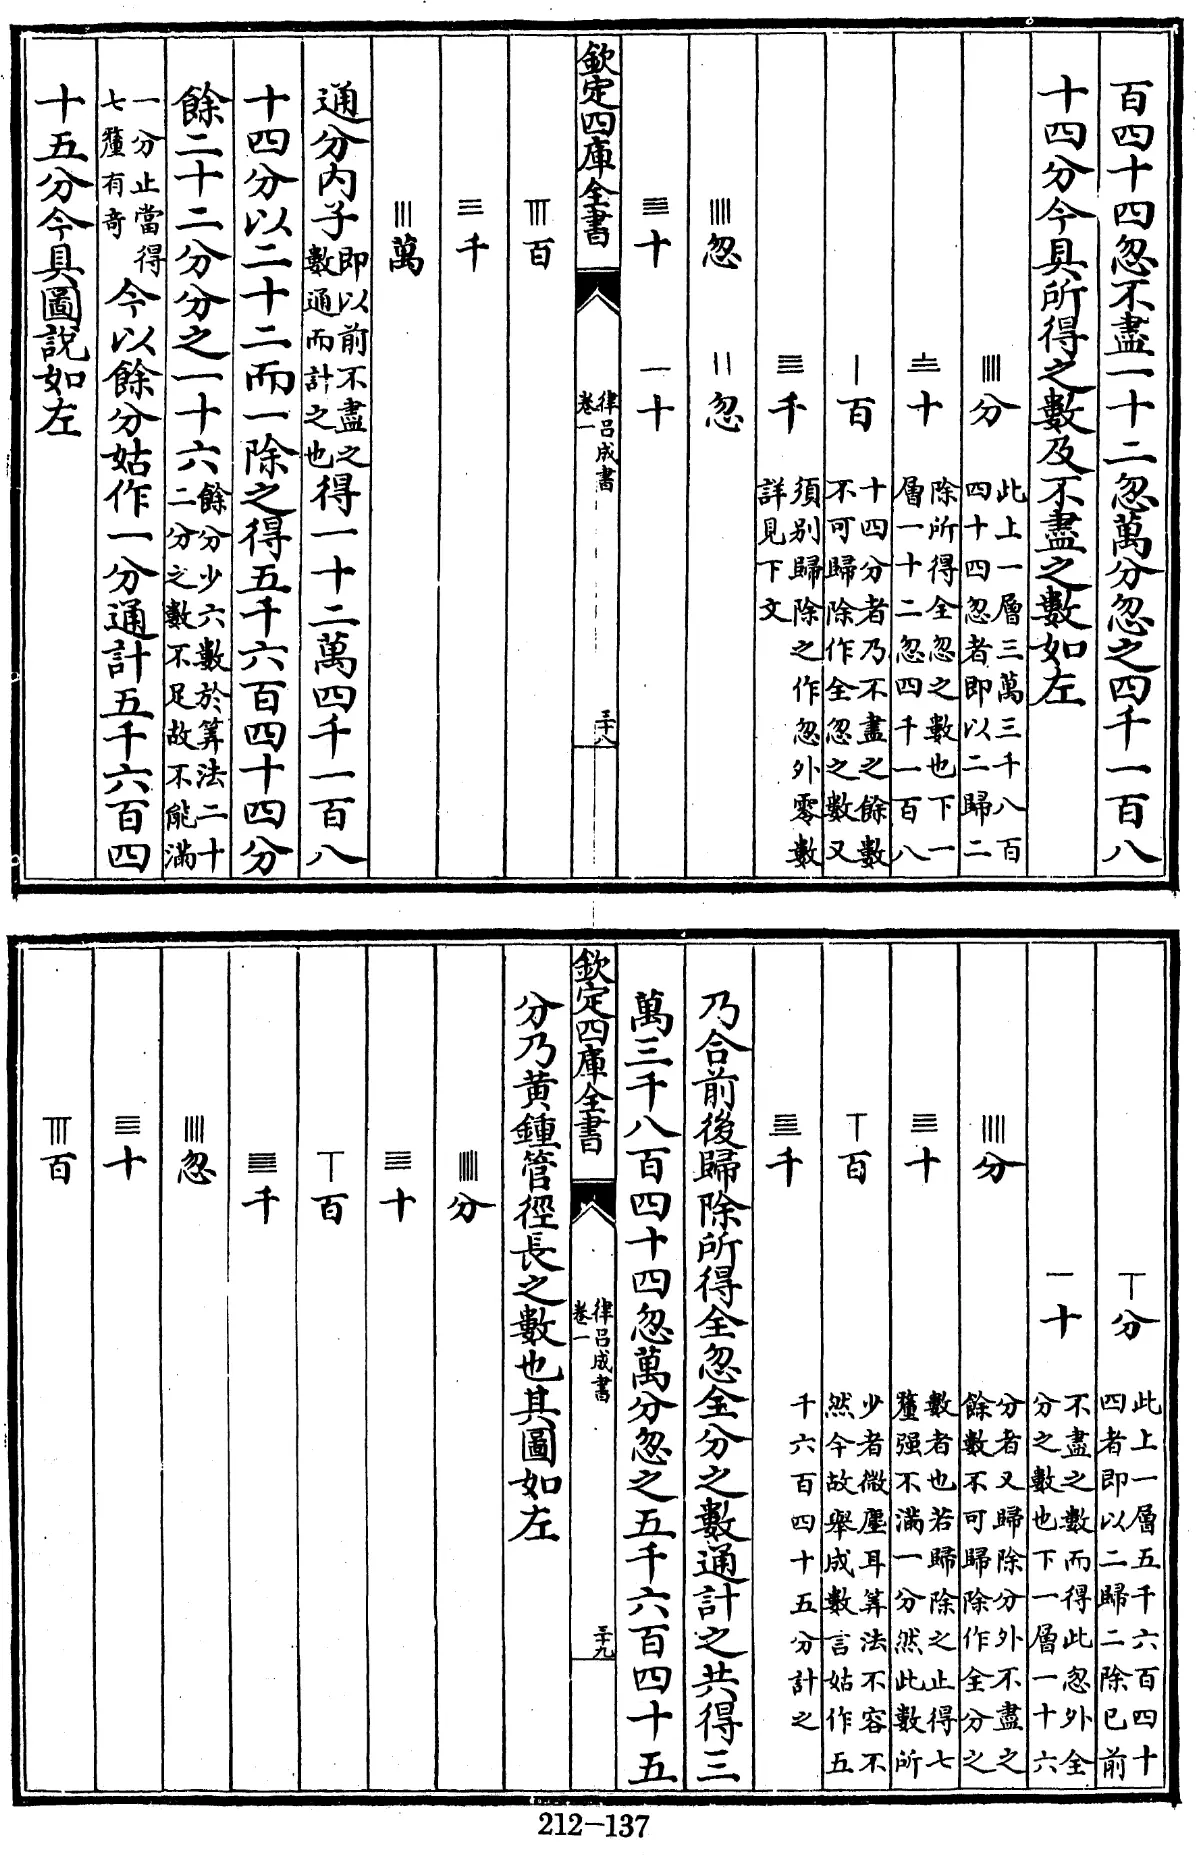 百四十四忽不盡一十二忽萬分忽之四千一百八
十四分今具所得之數及不盡之數如左
𝍣分
此上一層三萬三千八百
四十四忽者即以二歸二
𝍰十
除所得全忽之數也下一
層一十二忽四千一百八
𝍠百
十四分者乃不盡之餘數
不可歸除作全忽之數又
𝍬千
須别歸除之作忽外零數
詳見下文
𝍣忽
𝍡忽
𝍬十
𝍩十
欽定四庫全書
律吕成書
卷一
三十八
𝍧百
𝍫千
𝍢萬
通分内子
即以前不盡之
數通而計之也
得一十二萬四千一百八
十四分以二十二而一除之得五千六百四十四分
餘二十二分分之一十六
餘分少六數於筭法二十
二分之數不足故不能滿
一分止當得
七釐有奇
今以餘分姑作一分通計五千六百四
十五分今具圖說如左
𝍥分
此上一層五千六百四十
四者即以二歸二除已前
𝍩十
不盡之數而得此忽外全
分之數也下一層一十六
𝍣分
分者又歸除分外不盡之
餘數不可歸除作全分之
𝍬十
數者也若歸除之止得七
釐强不滿一分然此數所
𝍥百
少者微塵耳筭法不容不
然今故舉成數言姑作五
𝍭千
千六百四十五分計之
乃合前後歸除所得全忽全分之數通計之共得三
萬三千八百四十四忽萬分忽之五千六百四十五
欽定四庫全書
律吕成書
卷一
三十九
分乃黄鍾管徑長之數也其圖如左
𝍤分
𝍬十
𝍥百
𝍭千
𝍣忽
𝍬十
𝍧百
212-137